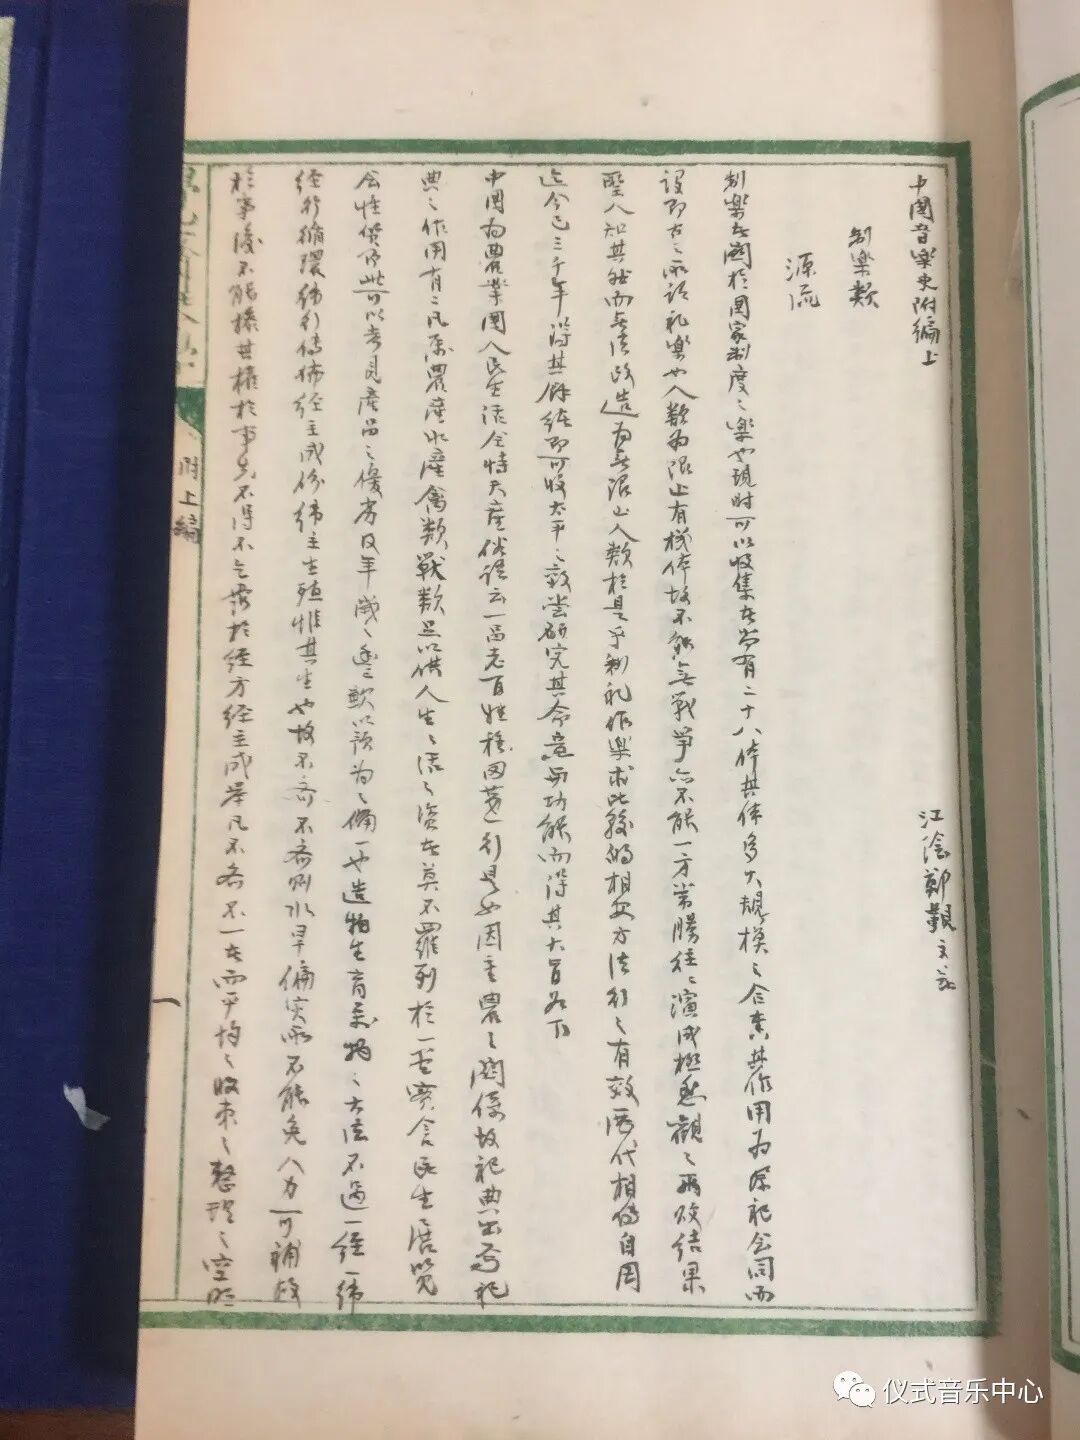 中國音樂史附編上
江陰鄭覲文著
制樂類
源流
制樂者關於國家制度之樂也現時可以收集者尚有二十八件其体多大規模之合奏其作用為祭祀会同而
設即古之所謂礼樂也人類為泥土有機体故不能無戰爭亦不能一方常勝往往演成極悲觀之兩敗結果
聖人知其然而無法改造為無泥土人類於是乎制礼作樂求此較的相安方法行之有效歷代相傳自周
迄今已三千年得其餘緒即可收太平之效尝研究其命意与功能而得其大旨如下
中國為農業國人民生活全恃天產俗語云一品老百姓種因是也因重農之關係故祀典出焉祀
典之作用有二凡屬農產水產禽類獸類足以供人生之活之資者莫不羅列於一堂實含民生展览
会性質即此可以考見產品之優劣及年歲之豐歉以預為之備一也造物生育萬物之大法不過一經一緯
經行循環緯行傳佈經主成份緯主生殖惟其生也故不齐不齐則水旱偏灾所不能免人力可補救
於事後不能操其權於事先不得不乞靈於經方經主成举凡不齐不一者而平均之收束之整理之
附上編
一
仪式音乐中心